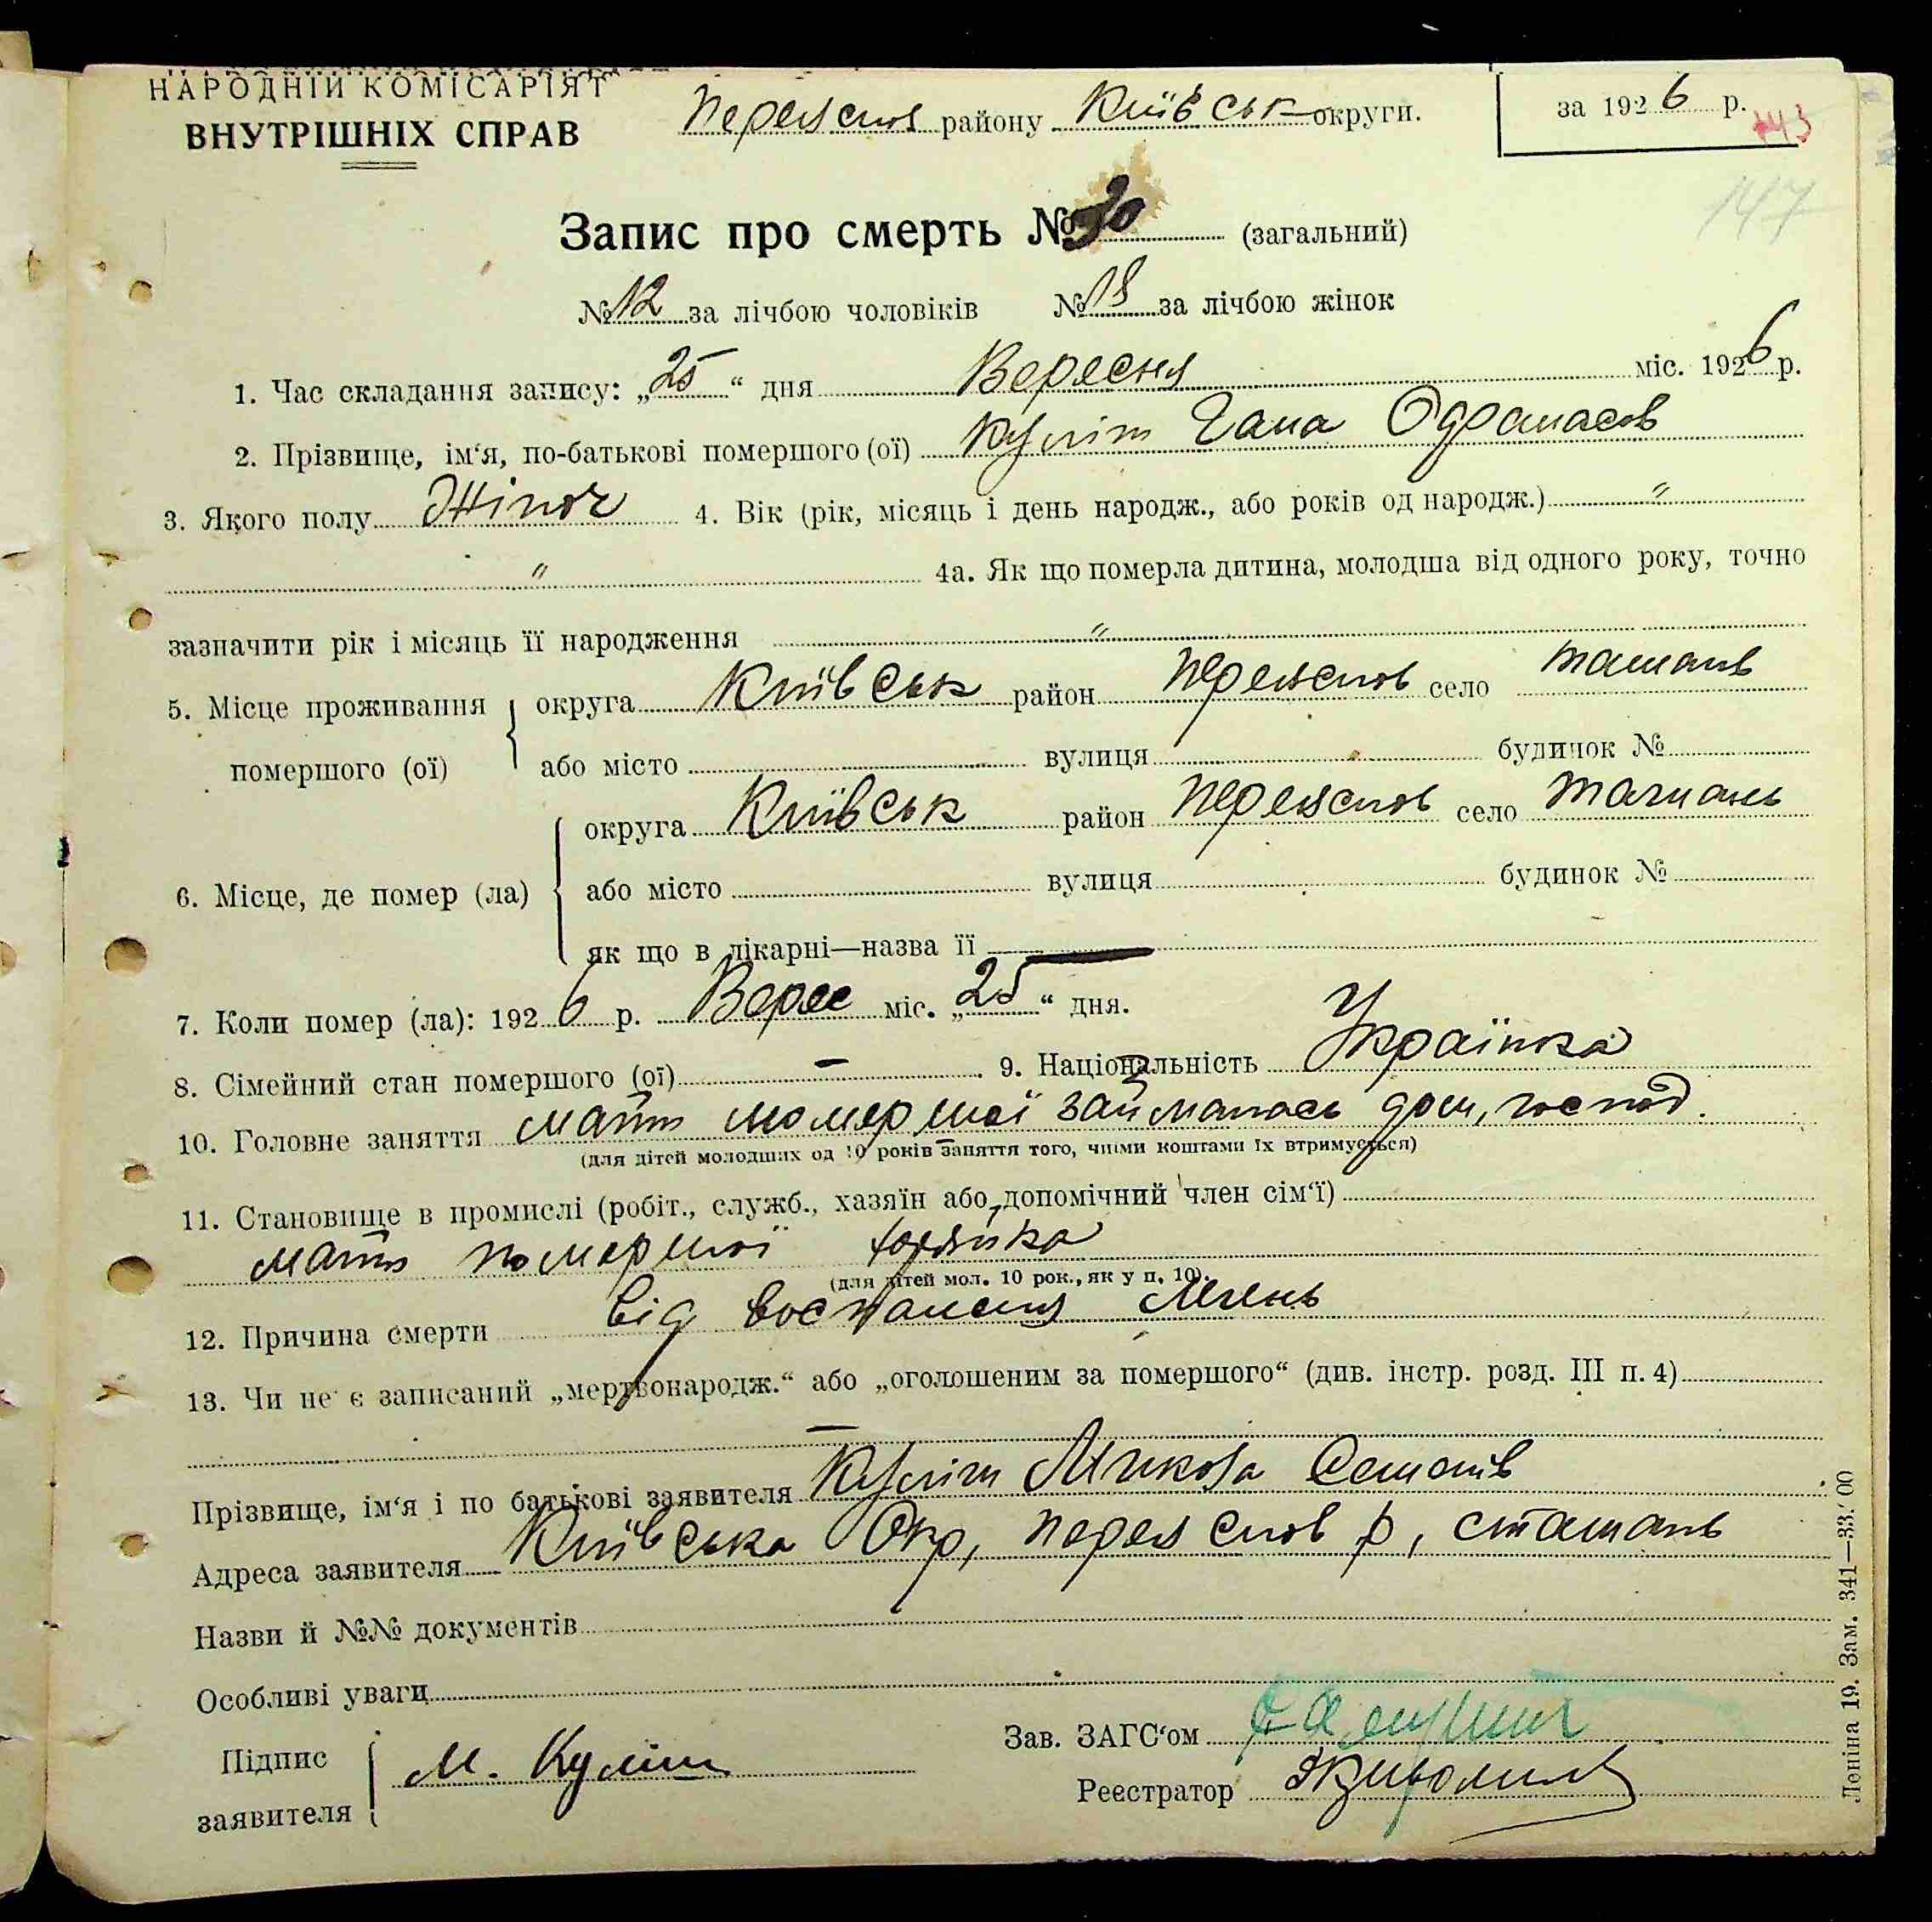 НАРОДНІЙ КОМІСАРІЯТ
ВНУТРІШНІХ СПРАВ
Переяслов району Київськ округи.
за 1926 р.
143
147
Запис про смерть № 30 (загальний)
№ 12 за лічбою чоловіків № 18 за лічбою жінок
1. Час складання запису: „25“ дня Вересня міс. 1926 р.
2. Прізвище, ім‘я, по-батькові помершого (ої) Куліш Гана
3. Якого полу Жіноч 4. Вік (рік, місяць і день народж., або років од народж.) "
" 4а. Як що померла дитина, молодша від одного року, точно
зазначити рік і місяць її народження "
5. Місце проживання помершого (ої) округа Київськ район Переяслов село Ташань
або місто вулиця будинок №
6. Місце, де помер (ла) округа Київськ район Переяслов село Ташань
або місто вулиця будинок №
як що в лікарні—назва її —
7. Коли помер (ла): 1926 р. Верес міс. „25“ дня.
8. Сімейний стан помершого (ої) — 9. Національність Українка
10. Головне заняття мати помершої займалась дом, господ.
(для дітей молодших од 10 років заняття того, чиїми коштами їх втримується)
11. Становище в промислі (робіт., служб., хазяїн або допомічний член сім‘ї)
мати помершої
(для дітей мол. 10 рок., як у п. 10).
12. Причина смерти Від воспаления
13. Чи не є записаний „мертвонародж.“ або „оголошеним за помершого“ (див. інстр. розд. III п. 4)
—
Прізвище, ім‘я і по батькові заявителя Куліш Микола
Адреса заявителя Київська Окр, Переяслов р, с Ташань
Назви й №№ документів
Особливі уваги
Підпис заявителя М. Куліш
Зав. ЗАГС‘ом
Реєстратор
Леніна 19. Зам. 341—33.